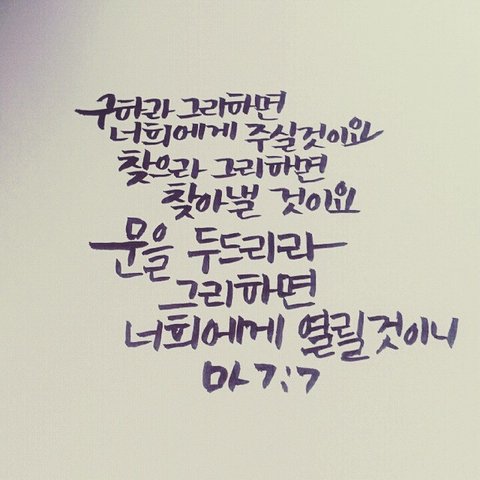 구하라 그리하면
너희에게 주실것이요
찾으라 그리하면
찾아낼 것이요
문을 두드리라
그리하면
너희에게 열릴것이니
마 7:7